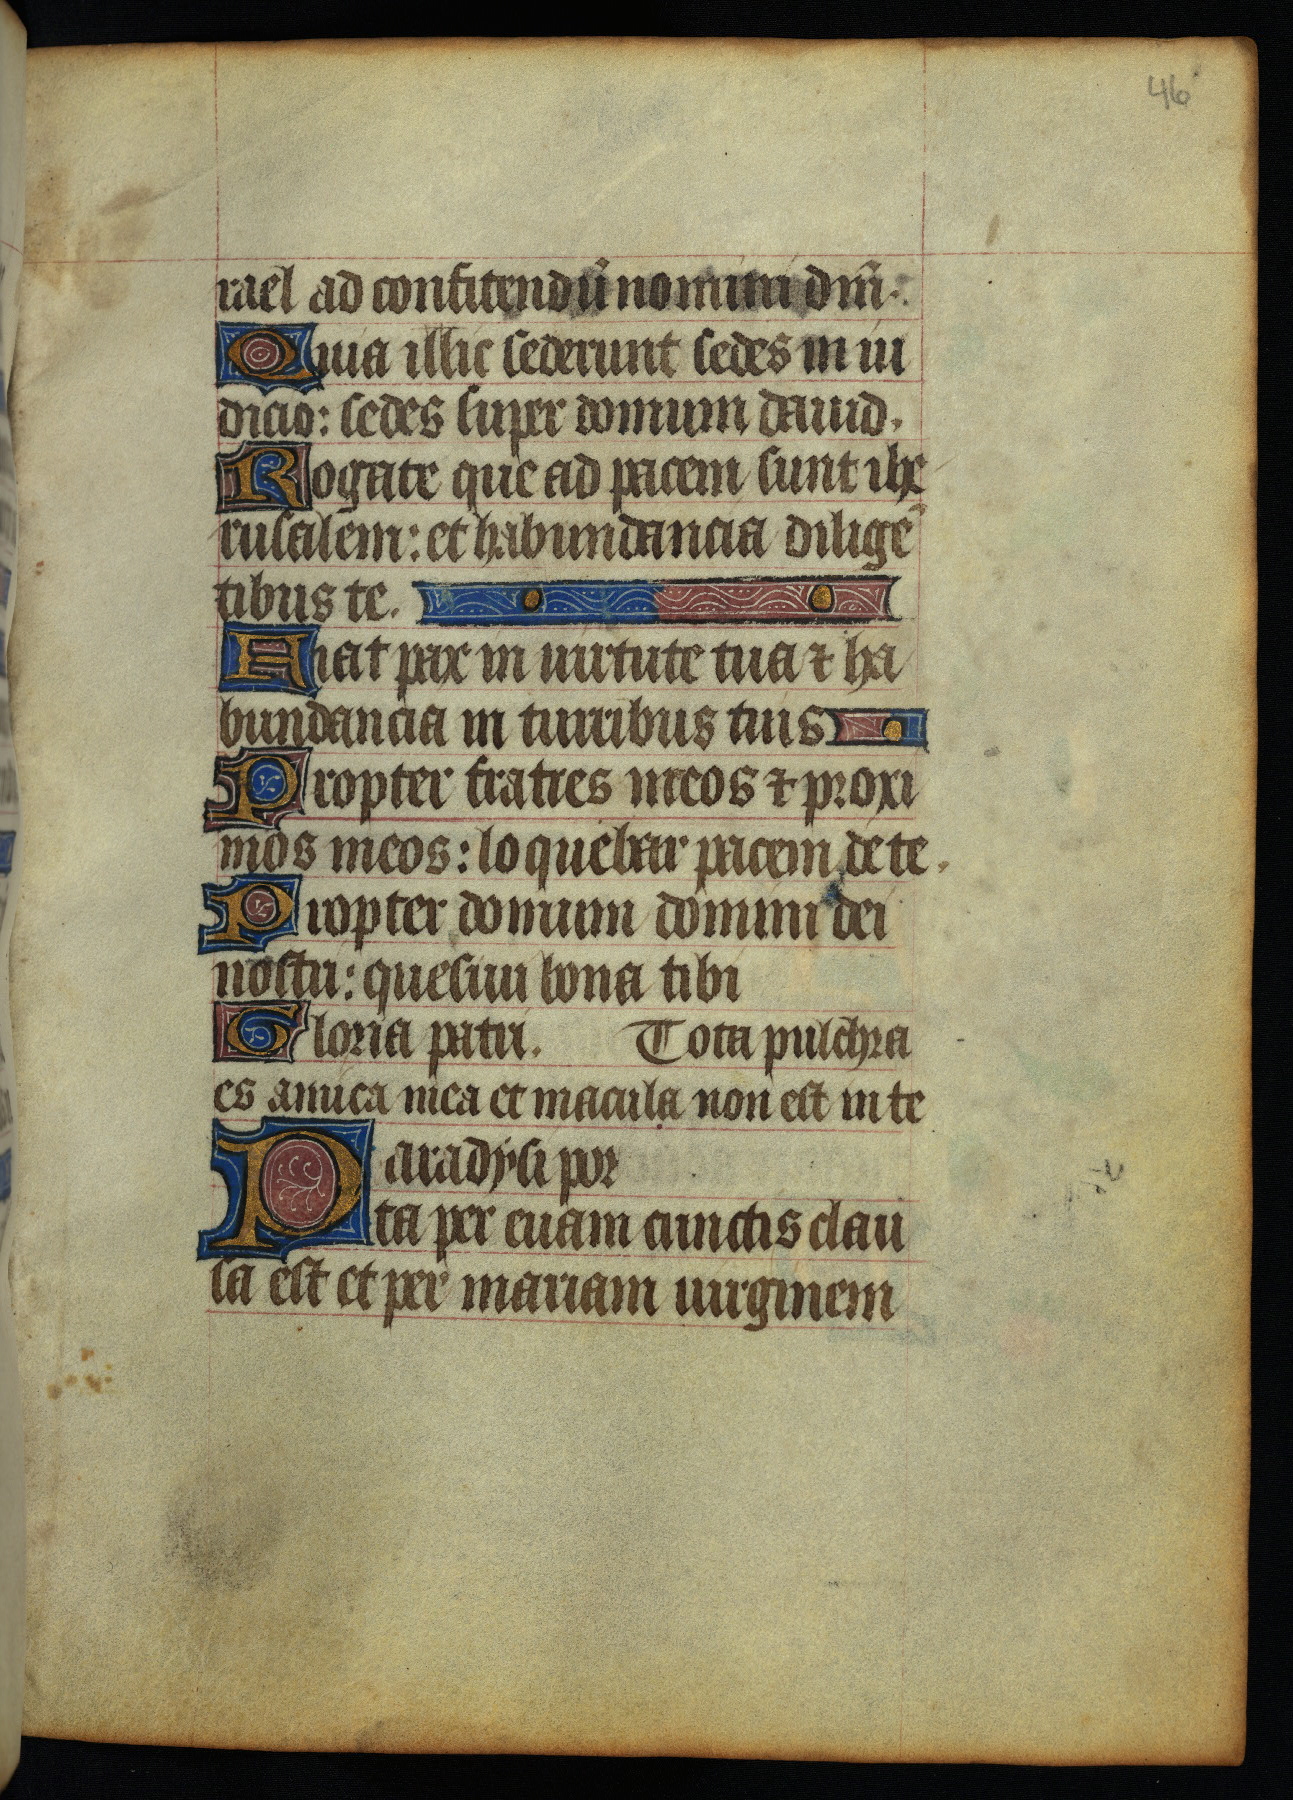 46
rael ad confitendū nomini dn̄i.
Quia illic sederunt sedes in iu
dicio: sedes super domum dauid.
Rogate que ad pacem sunt ihe
rusalem: et habundancia diligē
tibus te.
Fiat pax in uirtute tua ⁊ ha
bundancia in turribus tuis
Propter fratres meos ⁊ proxi
mos meos: loquebar pacem de te.
Propter domum domini dei
nostri: quesiui bona tibi
Gloria patri. Tota pulchra
es amica mea et macula non est in te
Paradysi por
ta per euam cunctis clau
sa est et per mariam uirginem